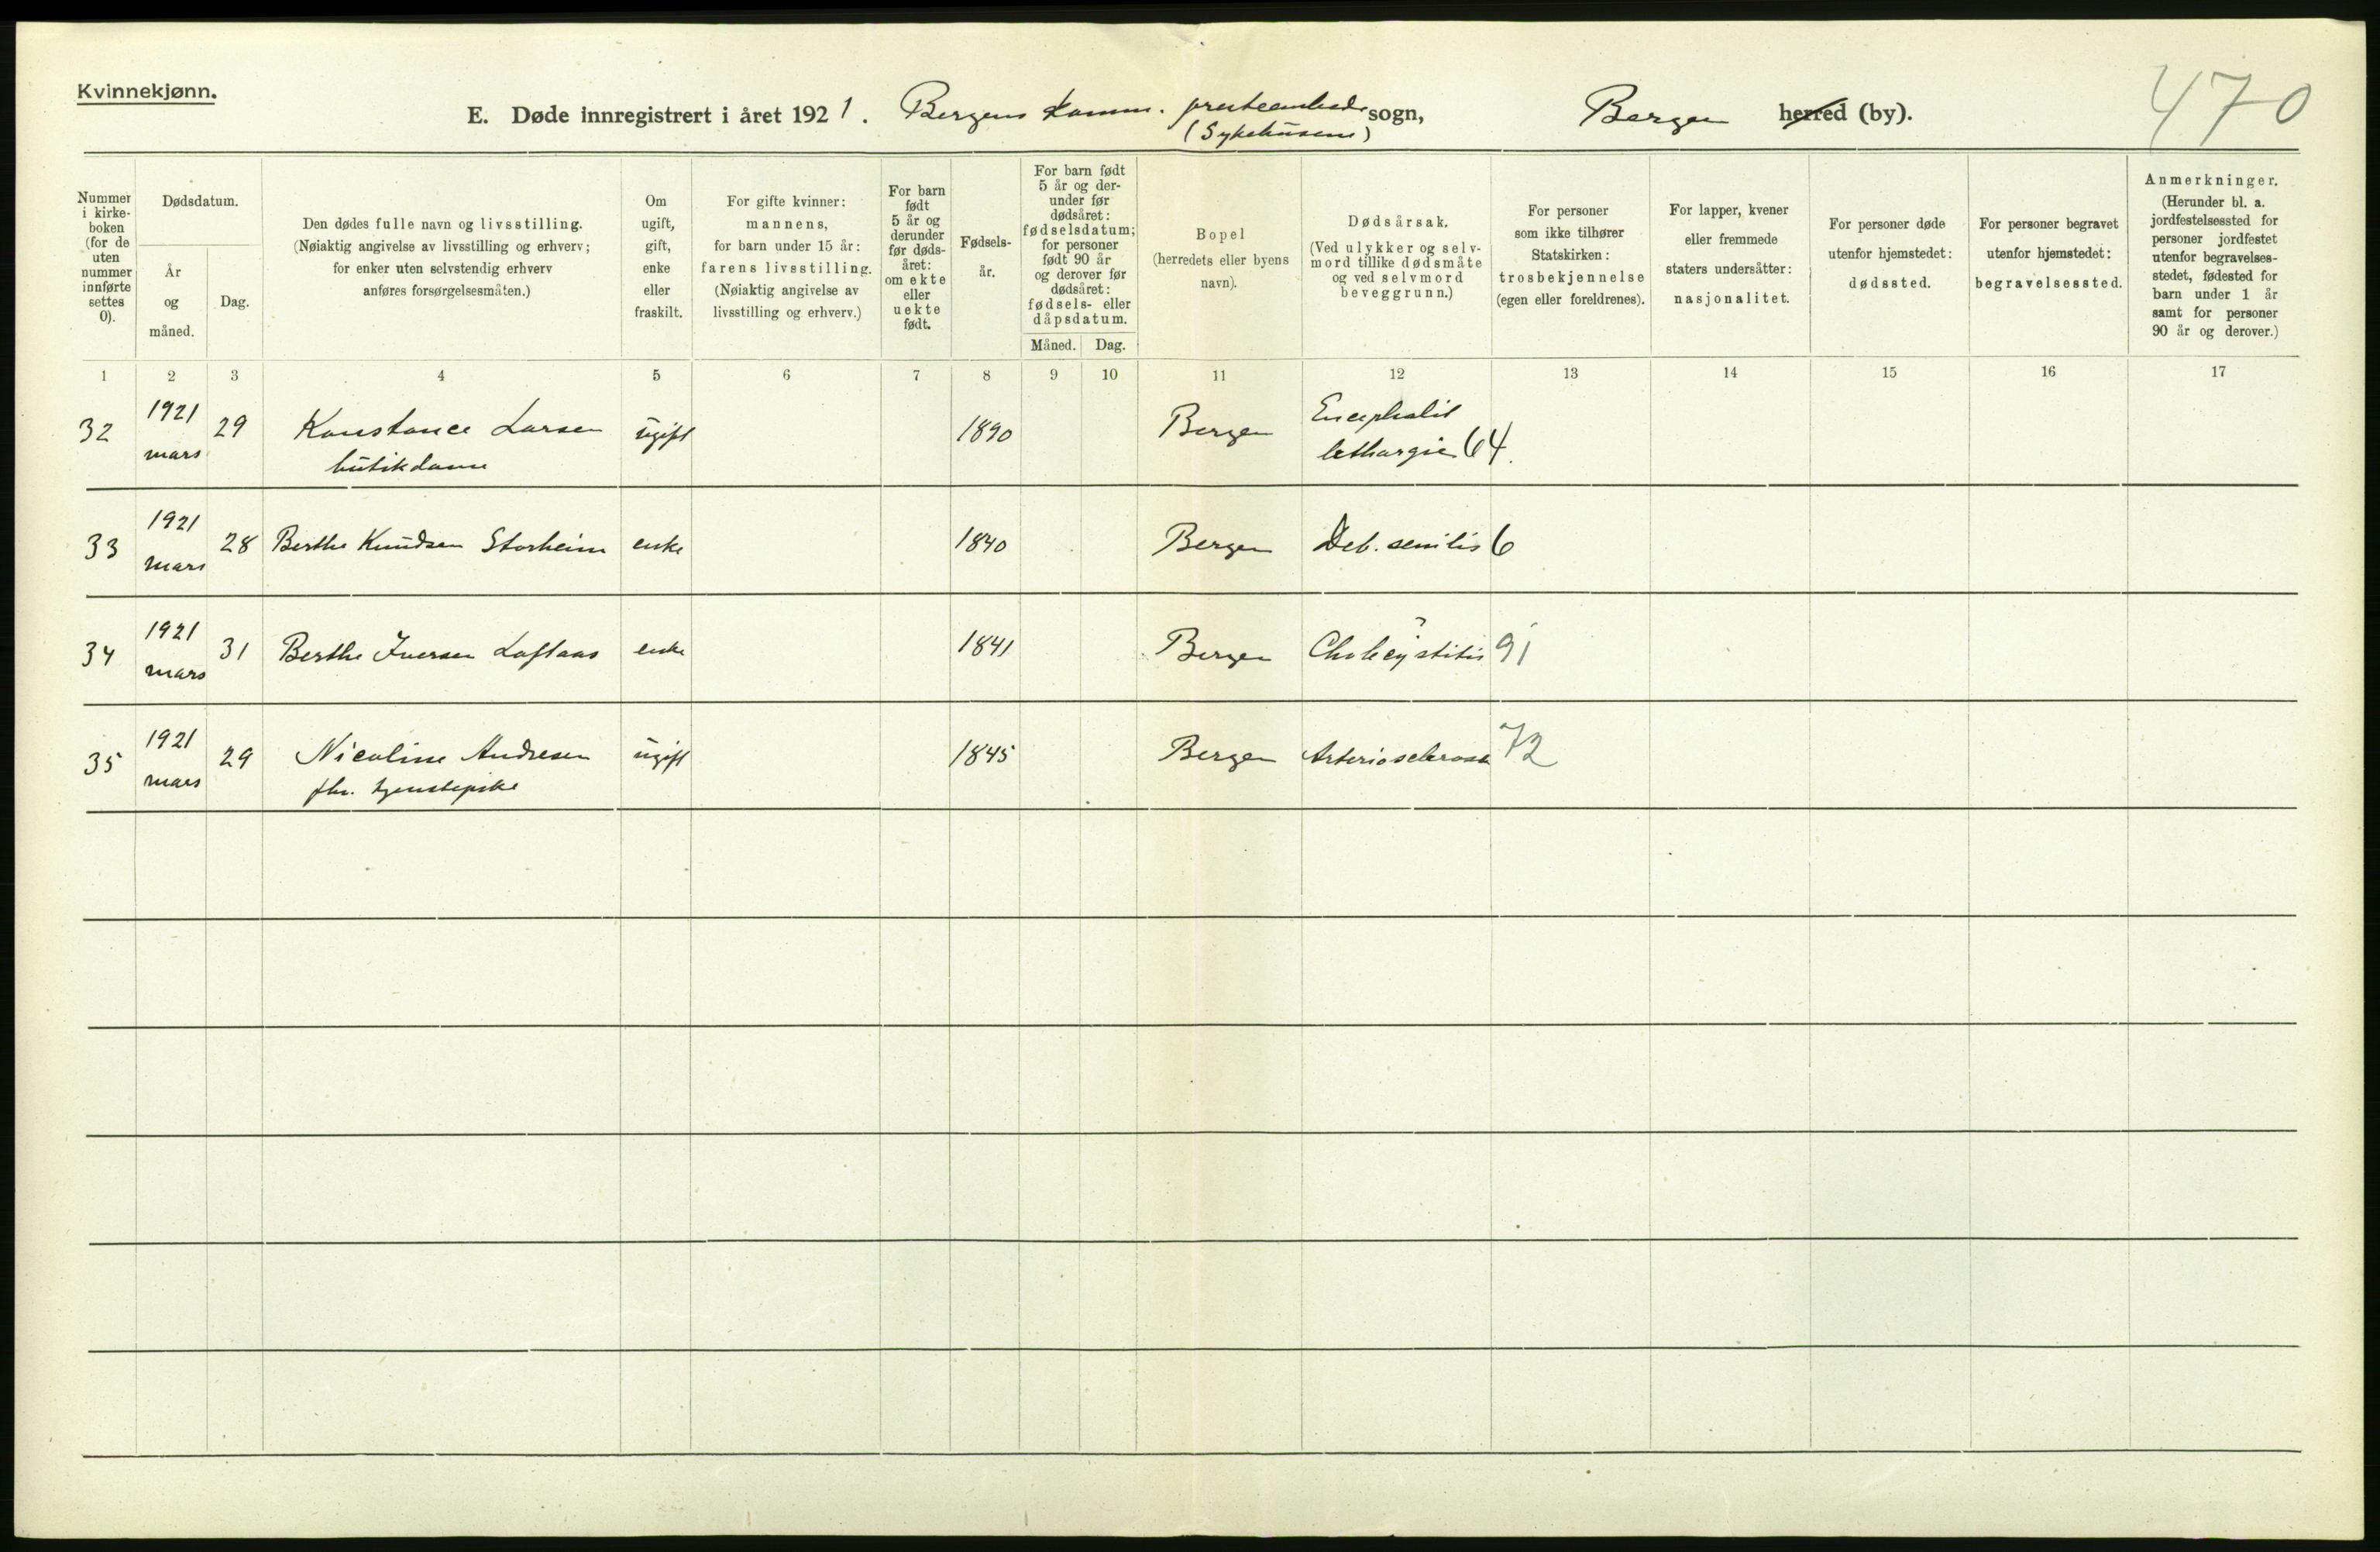 Kvinnekjønn.
E. Døde innregistrert i året 1921. Bergens komm. presteembede sogn, Bergen herred (by). 470
(Sykehusene)
Nummer i kirke- boken (for de uten nummer innførte settes 0).
Dødsdatum.
År og måned.
Dag.
Den dødes fulle navn og livsstilling.
(Nøiaktig angivelse av livsstilling og erhverv;
for enker uten selvstendig erhverv
anføres forsørgelsesmåten.)
Om ugift, gift, enke eller fraskilt.
For gifte kvinner:
mannens,
for barn under 15 år:
farens livsstilling.
(Nøiaktig angivelse av
livsstilling og erhverv.)
For barn født 5 år og derunder før døds- året: om ekte eller uekte født.
Fødsels- år.
For barn født 5 år og der- under før dødsåret: fødselsdatum; for personer født 90 år og derover før dødsåret: fødsels- eller dåpsdatum.
Måned. Dag.
Bopel
(herredets eller byens
navn).
Dødsårsak.
(Ved ulykker og selv-
mord tillike dødsmåte
og ved selvmord
beveggrunn.)
For personer
som ikke tilhører
Statskirken:
trosbekjennelse
(egen eller foreldrenes).
For lapper, kvener
eller fremmede
staters undersåtter:
nasjonalitet.
For personer døde
utenfor hjemstedet:
dødssted.
For personer begravet
utenfor hjemstedet:
begravelsessted.
Anmerkninger.
(Herunder bl. a.
jordfestelsessted for
personer jordfestet
utenfor begravelses-
stedet, fødested for
barn under 1 år
samt for personer
90 år og derover.)
1 2 3 4 5 6 7 8 9 10 11 12 13 14 15 16 17
32 1921 mars 29 Konstance Larsen butikdame ugift 1890 Bergen Encephalit lethargia 64.
33 1921 mars 28 Berthe Knudsen Storheim enke 1840 Bergen Deb. senilis 6
34 1921 mars 31 Berthe Iversen Loftaas enke 1841 Bergen Cholecystitis ? 91
35 1921 mars 29 Nicoline Andresen fhv. tjenestepike ugift 1845 Bergen Arteriosclerose 72